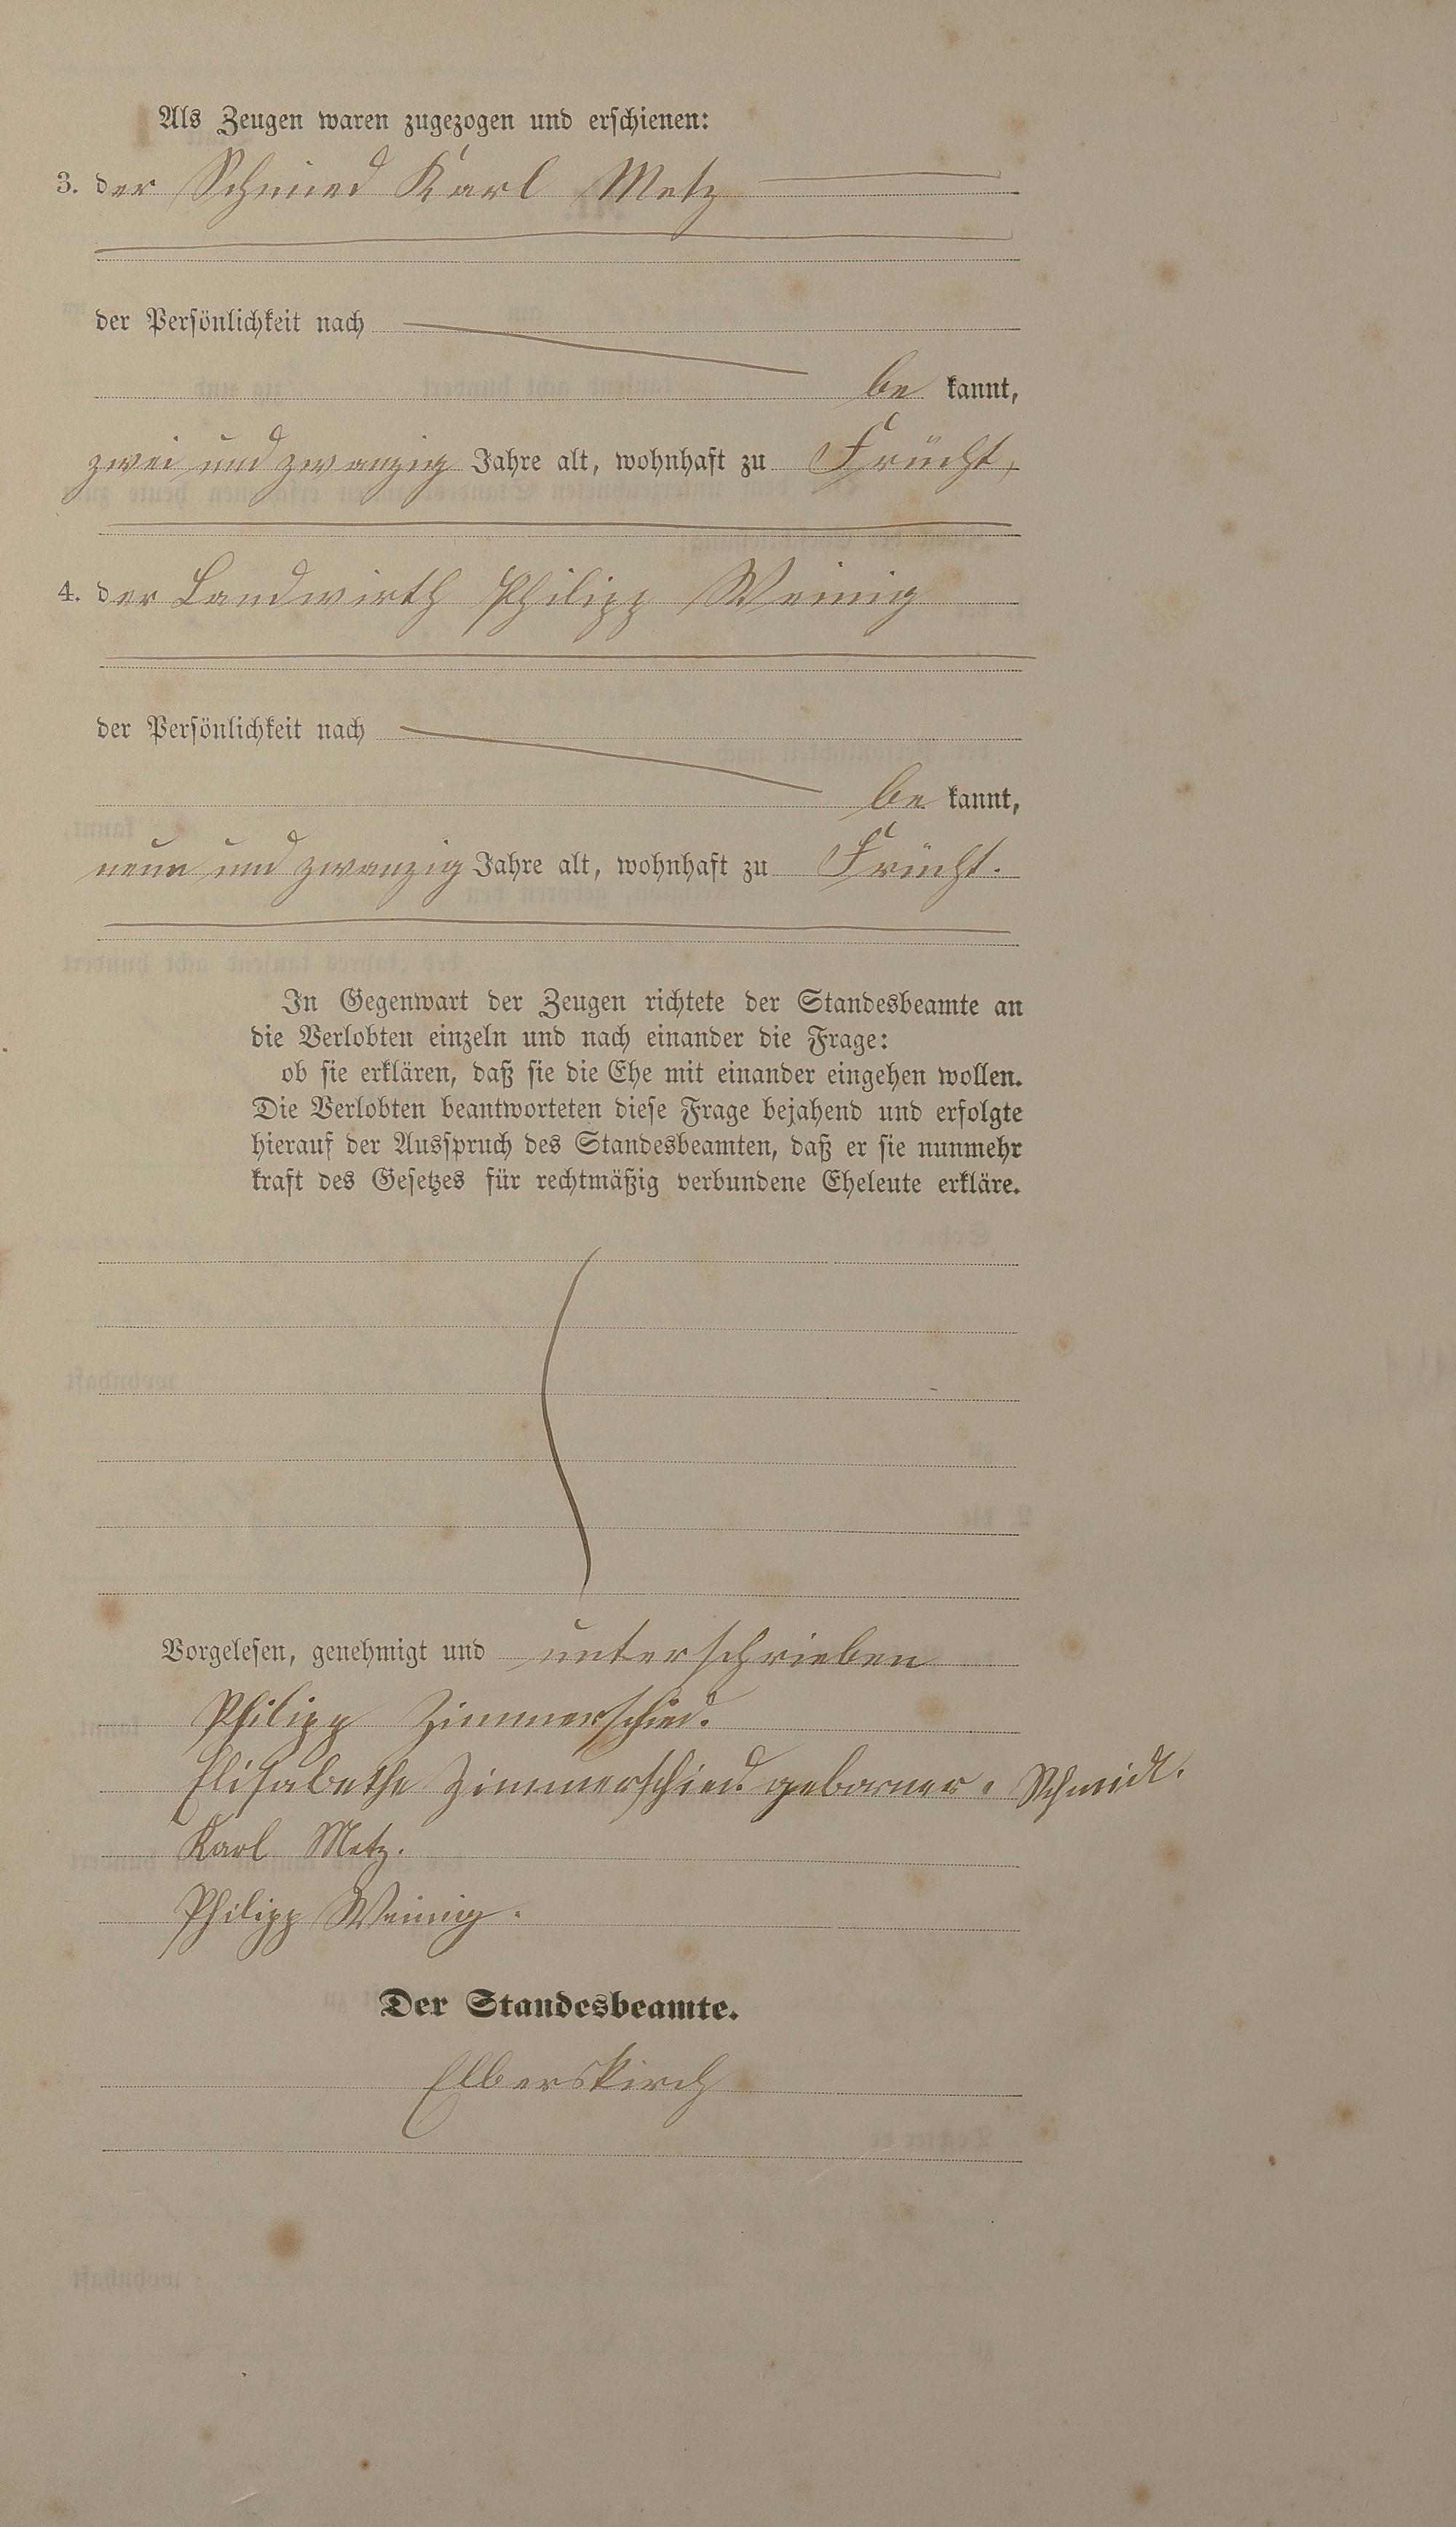 Als Zeugen waren zugezogen und erschienen:
3. der Schmied Karl Metz
der Persönlichkeit nach
be kannt,
zwei und zwanzig Jahre alt, wohnhaft zu Frücht,
4. der Landwirth Philipp Weinig
der Persönlichkeit nach
be kannt,
neun und zwanzig Jahre alt, wohnhaft zu Frücht.
In Gegenwart der Zeugen richtete der Standesbeamte an
die Verlobten einzeln und nach einander die Frage:
ob sie erklären, daß sie die Ehe mit einander eingehen wollen.
Die Verlobten beantworteten diese Frage bejahend und erfolgte
hierauf der Ausspruch des Standesbeamten, daß er sie nunmehr
kraft des Gesetzes für rechtmäßig verbundene Eheleute erkläre.
Vorgelesen, genehmigt und unterschrieben
Philipp Zimmerschied.
Elisabethe Zimmerschied geborner. Schmidt.
Karl Metz.
Philipp Weinig.
Der Standesbeamte.
Elberskirch